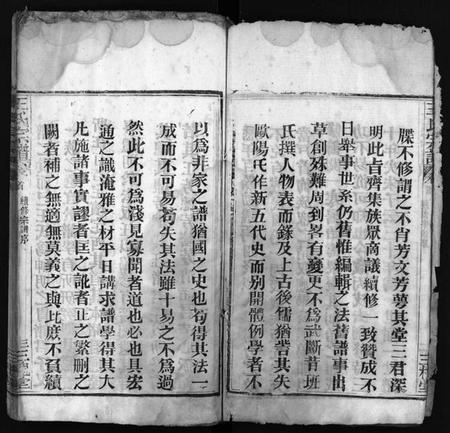 牒不修謂之不肖芳文芳蓼其堂三君深
明此㫖齊集族眾商議續修一致贊成不
日舉事世系仍舊惟編輯之法舊譜事出
草創殊難周到畧有變更不為武斷昔班
氏撰人物表而錄及上古後儒猶呰其失
歐陽氏作新五代史而別開體例學者不
以為非家之譜猶國之史也茍得其法一
成而不可易茍失其法雖十易之不為過
然此不可為淺見寡聞者道也必也具宏
通之識淹雅之材平日講求譜學得其大
凡施諸事實謬者匡之訛者止之繁刪之
闕者補之無適無莫義之與此庶不負續
王氏宗譜
續修宗譜序
三槐堂